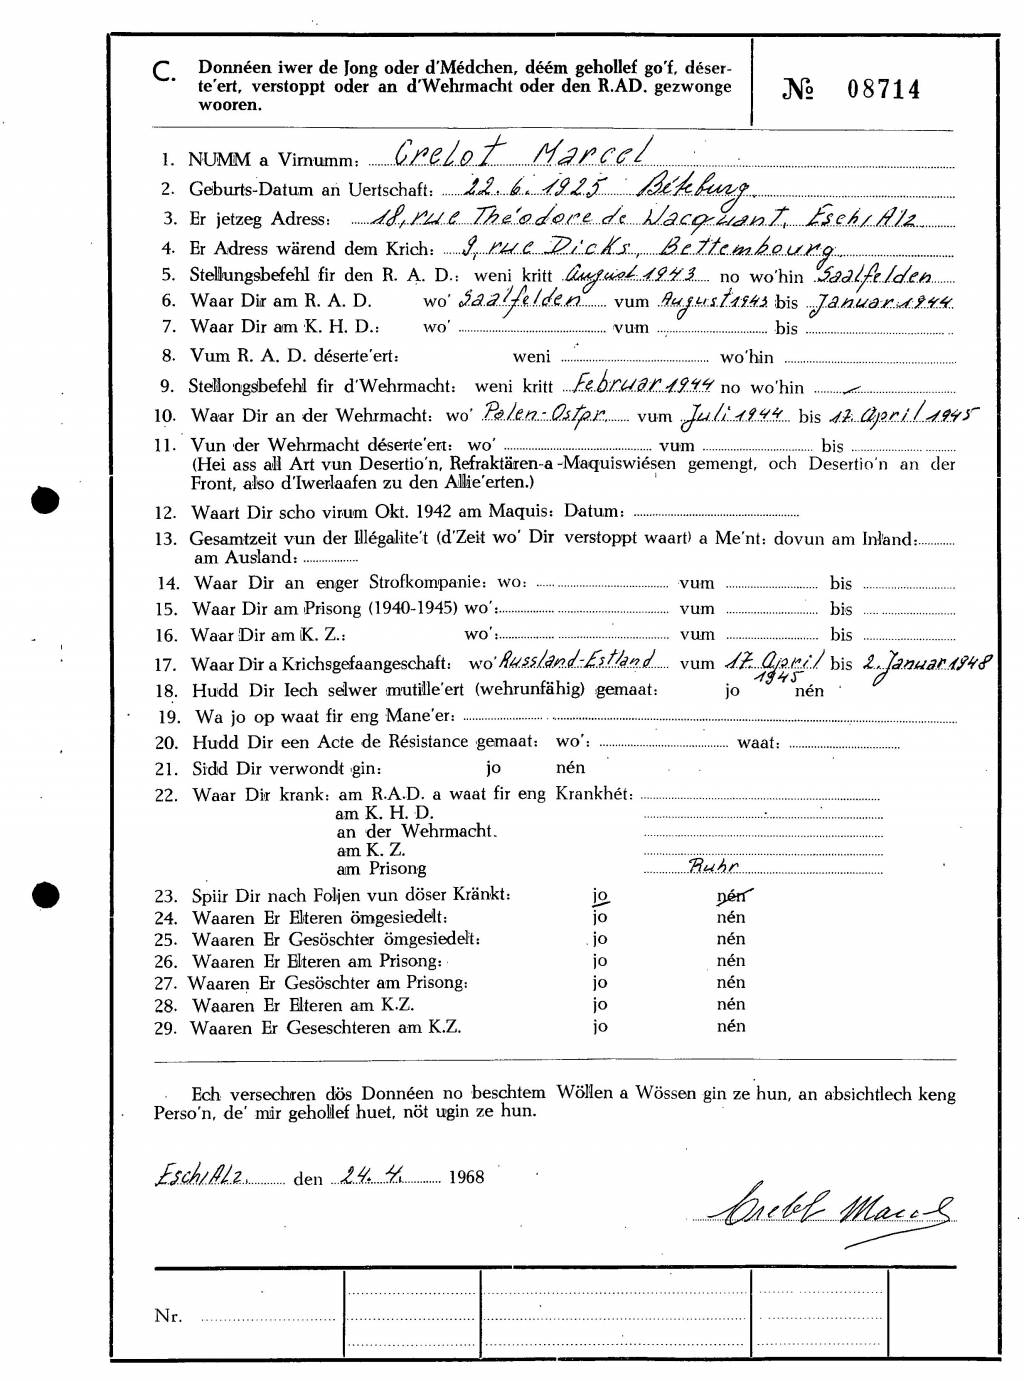 C. Donnéen iwer de Jong oder d'Médchen, déém gehollef go'f, déser-
te'ert, verstoppt oder an d'Wehrmacht oder den R.AD. gezwonge
wooren.
№ 08714
1. NUMM a Virnumm: Crelot Marcel
2. Geburts-Datum an Uertschaft: 22.6.1925 Béteburg.
3. Er jetzeg Adress: 18, rue Théodore de Wacquant, Esch/Alz
4. Er Adress wärend dem Krich: 9, rue Dicks, Bettembourg
5. Stellungsbefehl fir den R. A. D.: weni kritt August 1943 no wo'hin Saalfelden
6. Waar Dir am R. A. D. wo' Saalfelden vum August 1943 bis Januar 1944
7. Waar Dir am K. H. D.: wo' vum bis
8. Vum R. A. D. déserte'ert: weni wo'hin
9. Stellongsbefehl fir d'Wehrmacht: weni kritt Februar 1944 no wo'hin –
10. Waar Dir an der Wehrmacht: wo' Polen-Ostpr. vum Juli 1944 bis 17. April 1945
11. Vun der Wehrmacht déserte'ert: wo' vum bis
(Hei ass all Art vun Desertio'n, Refraktären-a -Maquiswiésen gemengt, och Desertio'n an der
Front, also d'Iwerlaafen zu den Allie'erten.)
12. Waart Dir scho virum Okt. 1942 am Maquis: Datum:
13. Gesamtzeit vun der Illégalite't (d'Zeit wo' Dir verstoppt waart) a Me'nt: dovun am Inland:
am Ausland:
14. Waar Dir an enger Strofkompanie: wo: vum bis
15. Waar Dir am Prisong (1940-1945) wo': vum bis
16. Waar Dir am K. Z.: wo': vum bis
17. Waar Dir a Krichsgefaangeschaft: wo' Russland-Estland vum 17. April 1945 bis 2. Januar 1948
18. Hudd Dir Iech selwer mutille'ert (wehrunfähig) gemaat: jo nén
19. Wa jo op waat fir eng Mane'er:
20. Hudd Dir een Acte de Résistance gemaat: wo': waat:
21. Sidd Dir verwondt gin: jo nén
22. Waar Dir krank: am R.A.D. a waat fir eng Krankhét:
am K. H. D.
an der Wehrmacht.
am K. Z.
am Prisong Ruhr
23. Spiir Dir nach Foljen vun döser Kränkt: jo nén
24. Waaren Er Elteren ömgesiedelt: jo nén
25. Waaren Er Gesöschter ömgesiedelt: jo nén
26. Waaren Er Elteren am Prisong: jo nén
27. Waaren Er Gesöschter am Prisong: jo nén
28. Waaren Er Elteren am K.Z. jo nén
29. Waaren Er Geseschteren am K.Z. jo nén
Ech versechren dös Donnéen no beschtem Wöllen a Wössen gin ze hun, an absichtlech keng
Perso'n, de' mir gehollef huet, nöt ugin ze hun.
Esch/Alz. den 24. 4. 1968
Crelot Marcel
Nr.